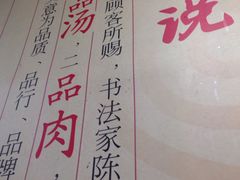 说
顾客所赐,书法家陈
品汤,二品肉,
意为品质、品行、品牌